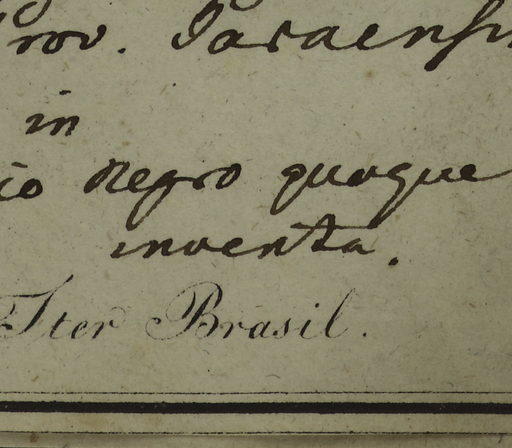 rov. Paraensi
in
io Negro quoque
inventa.
Iter Brasil.